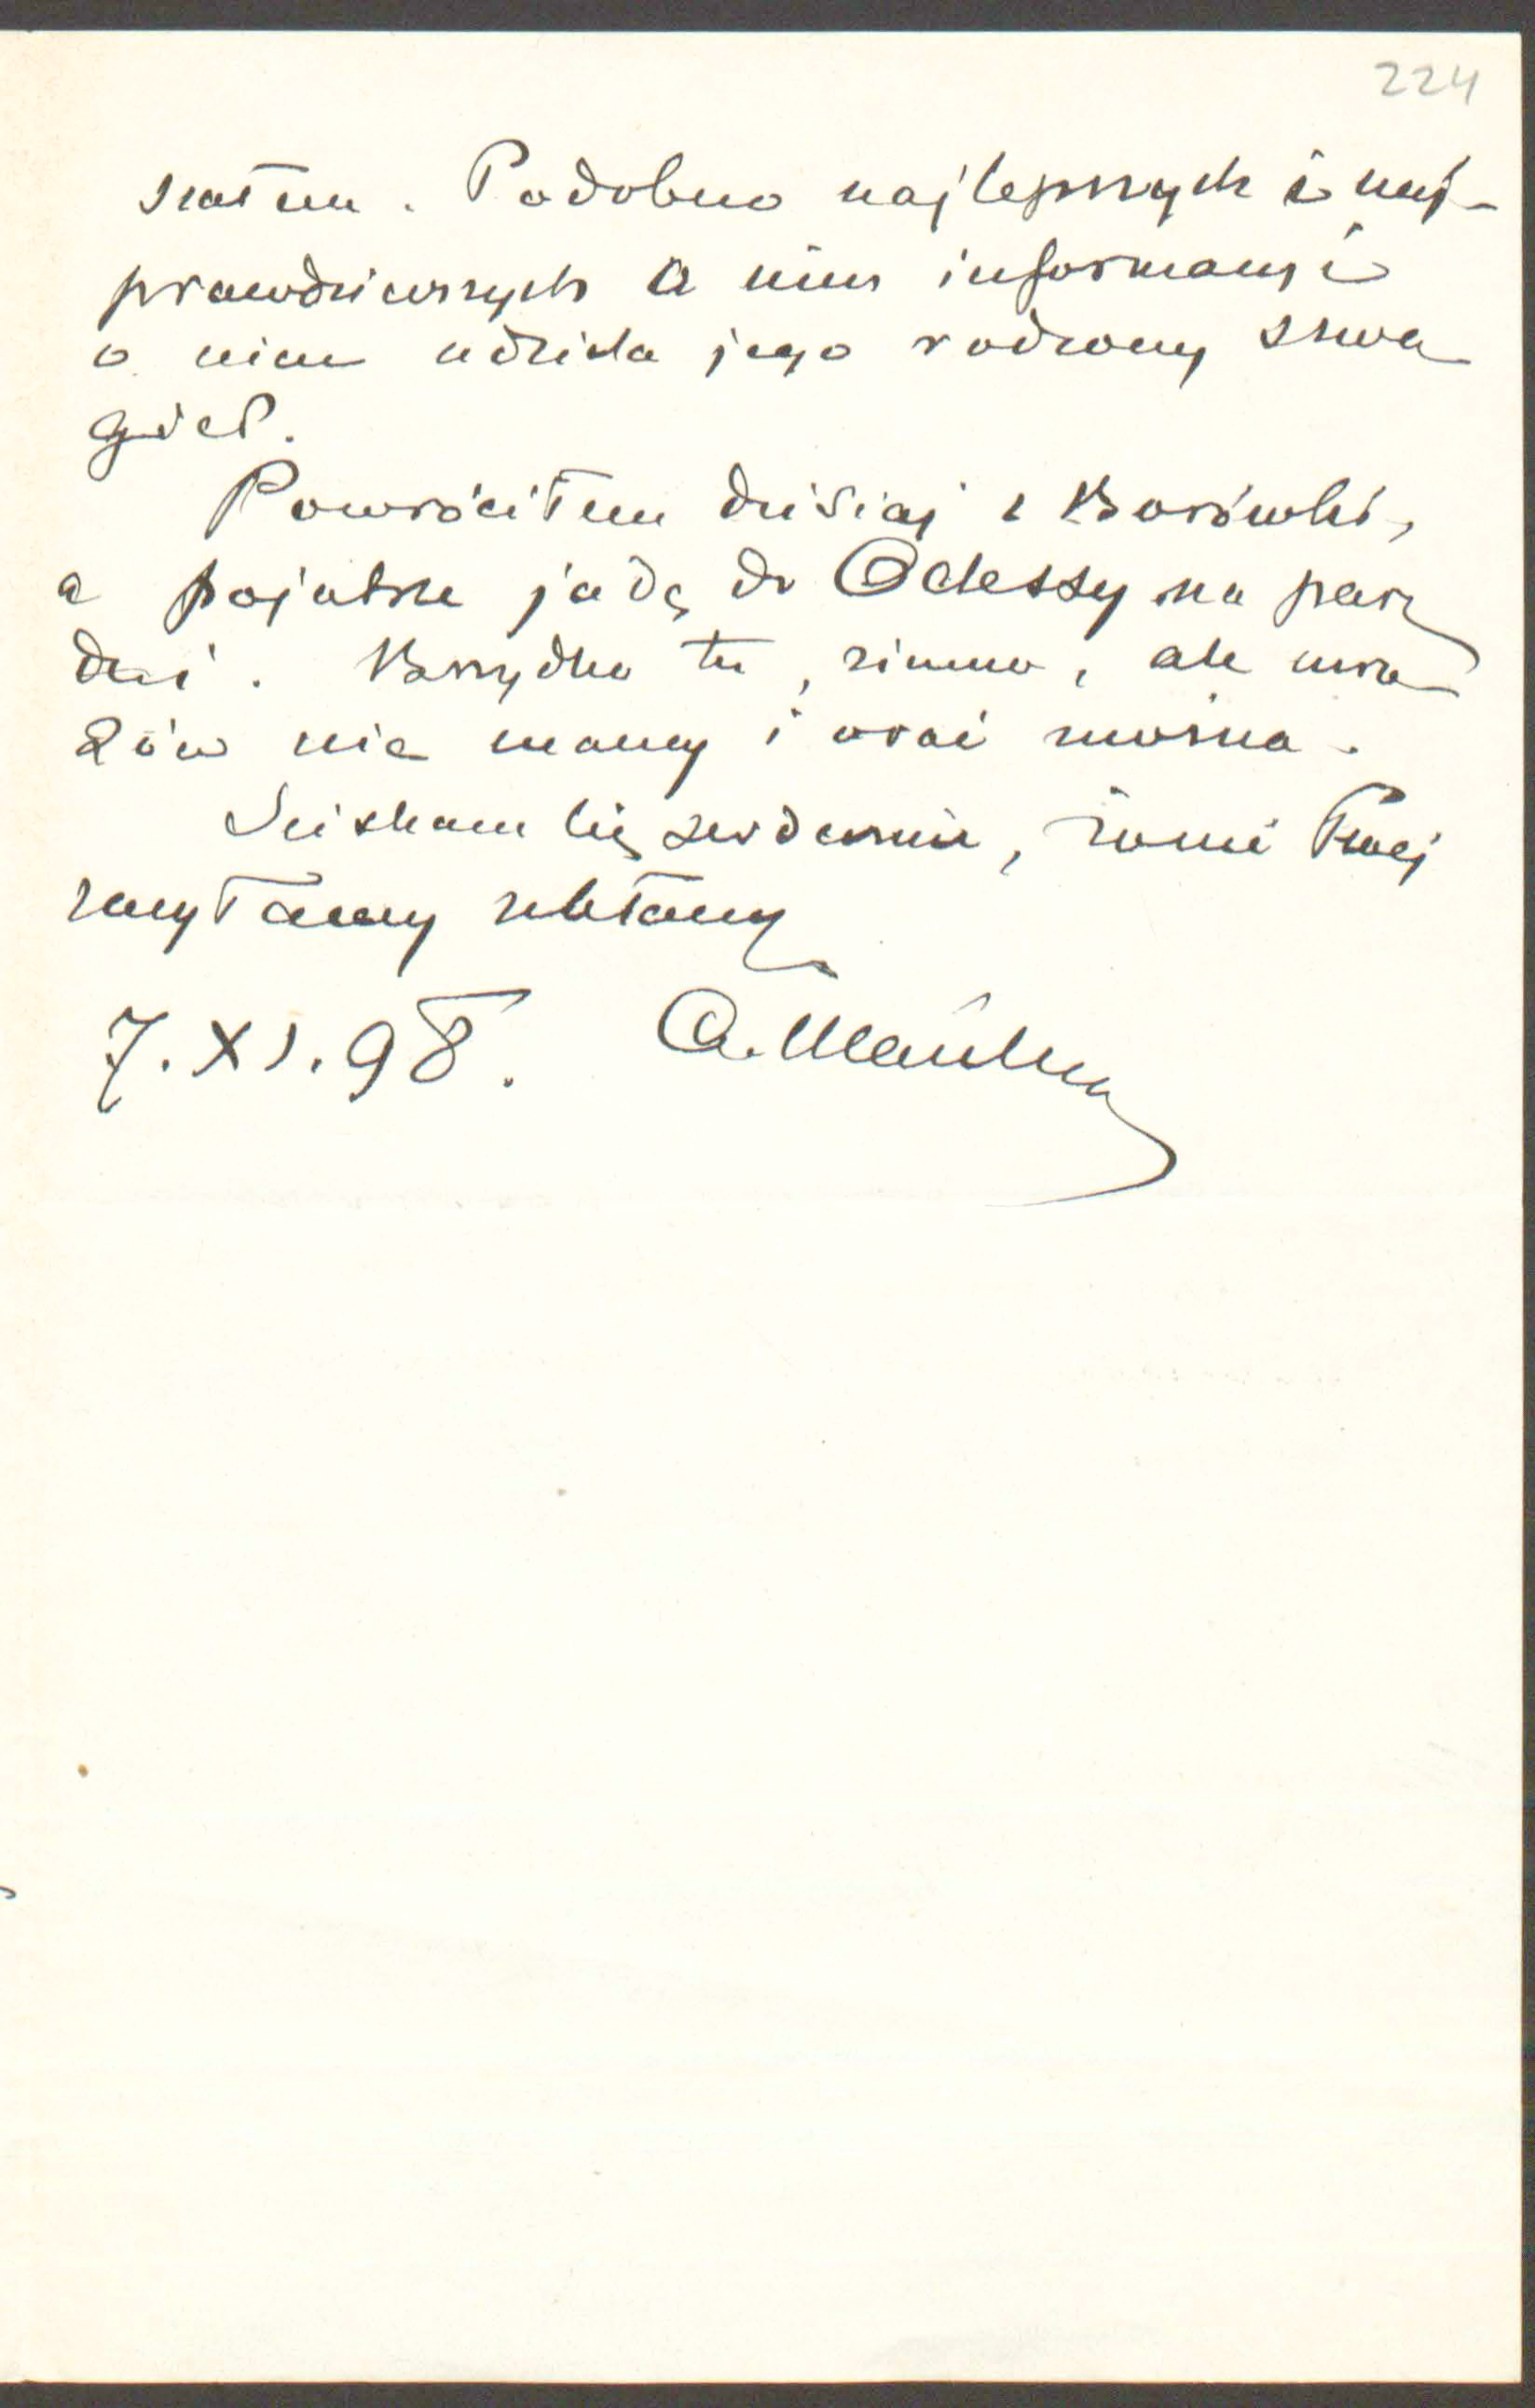 224
szałem. Podobno najlepszych i naj-
prawdziwszych o nim informacyi
o nim udziela jego rodzony szwa
gier.
Powróciłem dzisiaj z Borówki,
a pojutrze jadę do Odessy na parę
dni. Brzydko tu, zimno, ale mro
zów nie mamy i orać można.
Ściskam Cię serdecznie, żonie Twej
zasyłamy ukłony
7.XI.98. A.